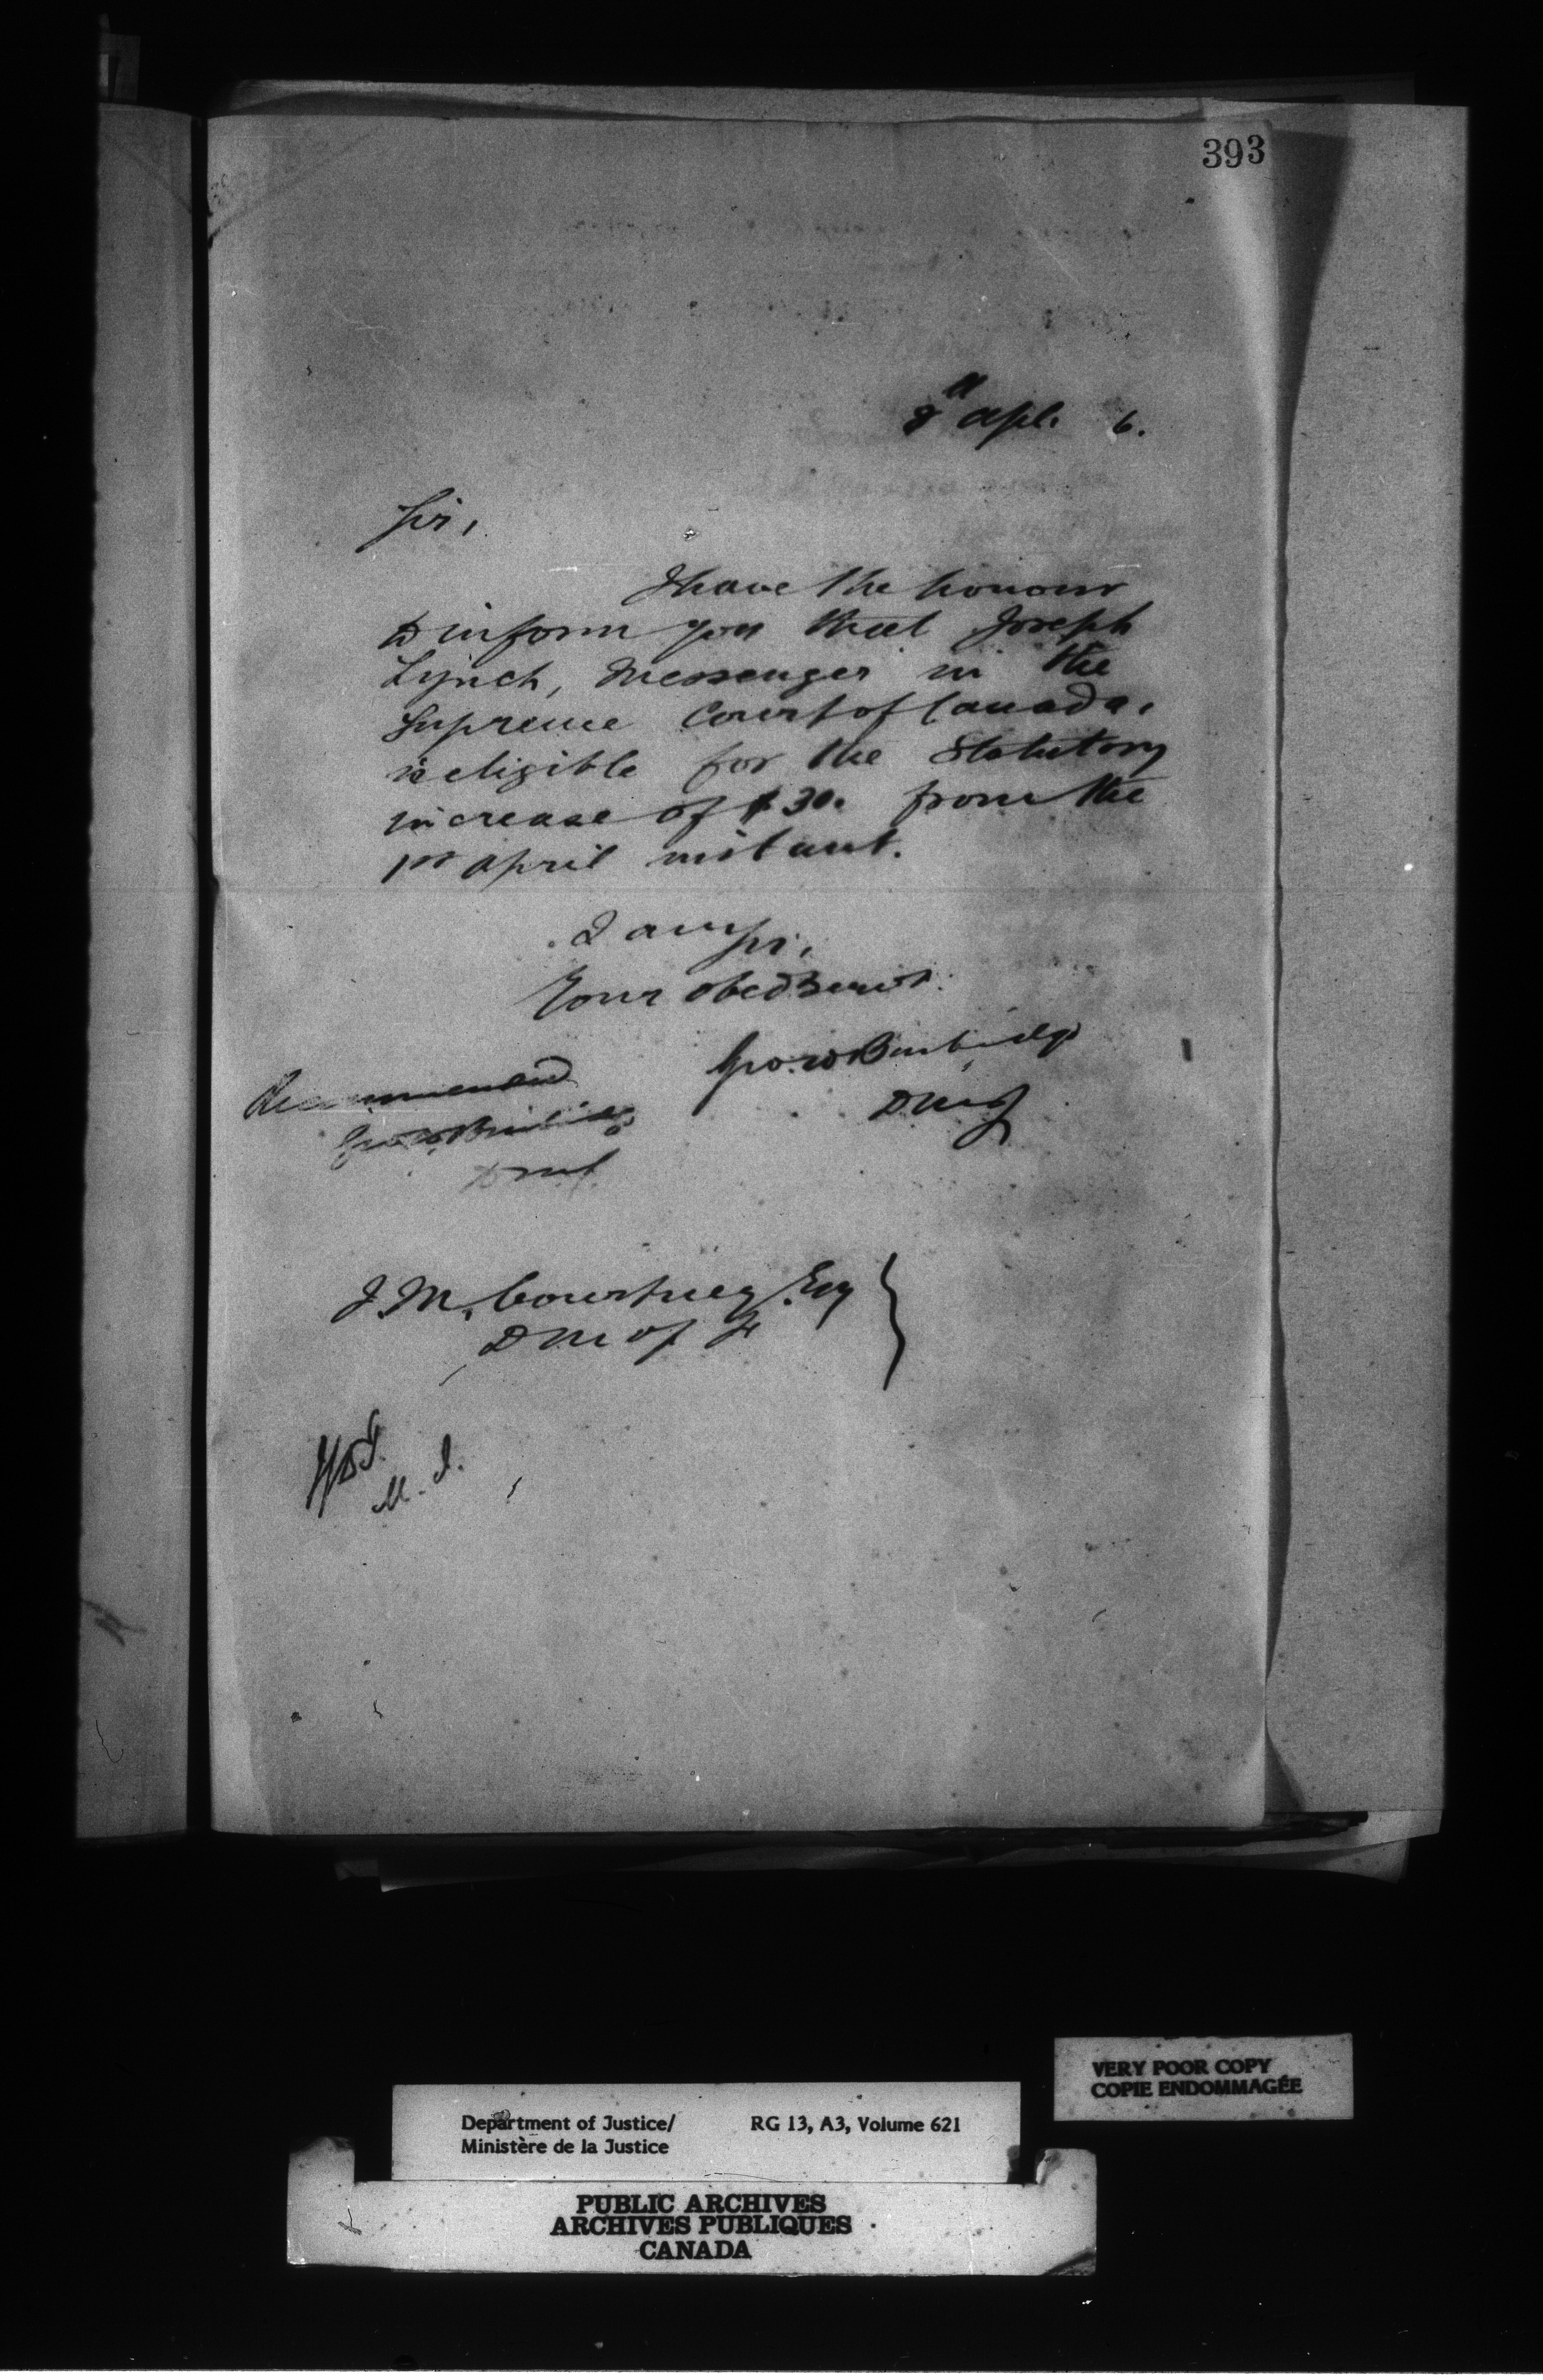 393
8th Apl. 6.
Sir,
I have the honour
to inform you that Joseph
Lynch, Messenger in the
Supreme Court of Canada,
is eligible for the Statutory
increase of $30. from the
1st April instant.
I am Sir,
Your obed Servt.
Geo. W Burbidge
DMJ
Recommended
Geo. W. Burbidge
DMJ
J. M. Courtney Esq
DM of F
M. J.
VERY POOR COPY
COPIE ENDOMMAGÉE
Department of Justice/ RG 13, A3, Volume 621
Ministère de la Justice
PUBLIC ARCHIVES
ARCHIVES PUBLIQUES
CANADA